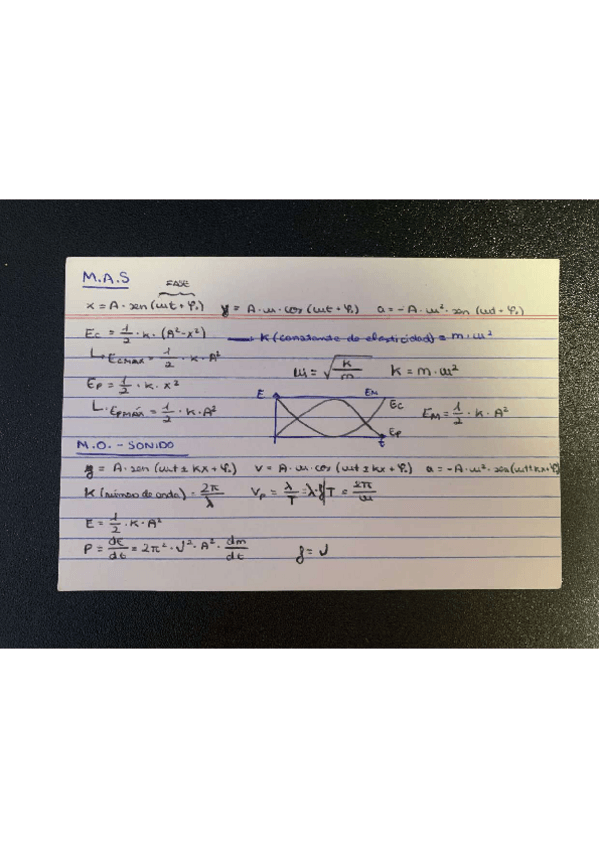 M.A.S
FASE
x = A · sen (ωt + φ₀) y = A · ω · cos (ωt + φ₀) a = -A · ω² · sen (ωt + φ₀)
Ec = 1/2 · k · (A² - x²) → K (constante de elasticidad) = m · ω²
↳ Ec MAX = 1/2 · k · A²
ω = √(k/m) k = m · ω²
Ep = 1/2 · k · x²
↳ Ep MÁX = 1/2 · k · A²
E EM Ec Ep t
EM = 1/2 · k · A²
M.O. - SONIDO
y = A · sen (ωt ± kx + φ₀) v = A · ω · cos (ωt ± kx + φ₀) a = -A · ω² · sen (ωt ± kx + φ₀)
K (número de onda) = 2π/λ Vp = λ/T = λ · f | T = 2π/ω
E = 1/2 · k · A²
P = dE/dt = 2π² · ν² · A² · dm/dt f = ν